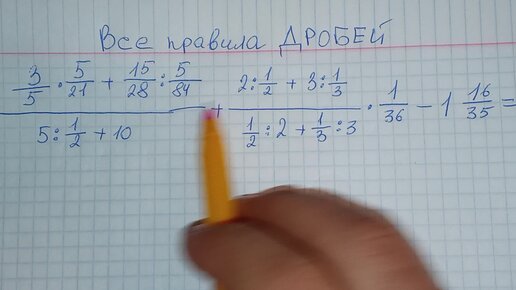 Все правила ДРОБЕЙ
3/5 · 5/21 + 15/28 : 5/84 / 5 : 1/2 + 10 + 2 : 1/2 + 3 : 1/3 / 1/2 : 2 + 1/3 : 3 · 1/36 - 1 16/35 =